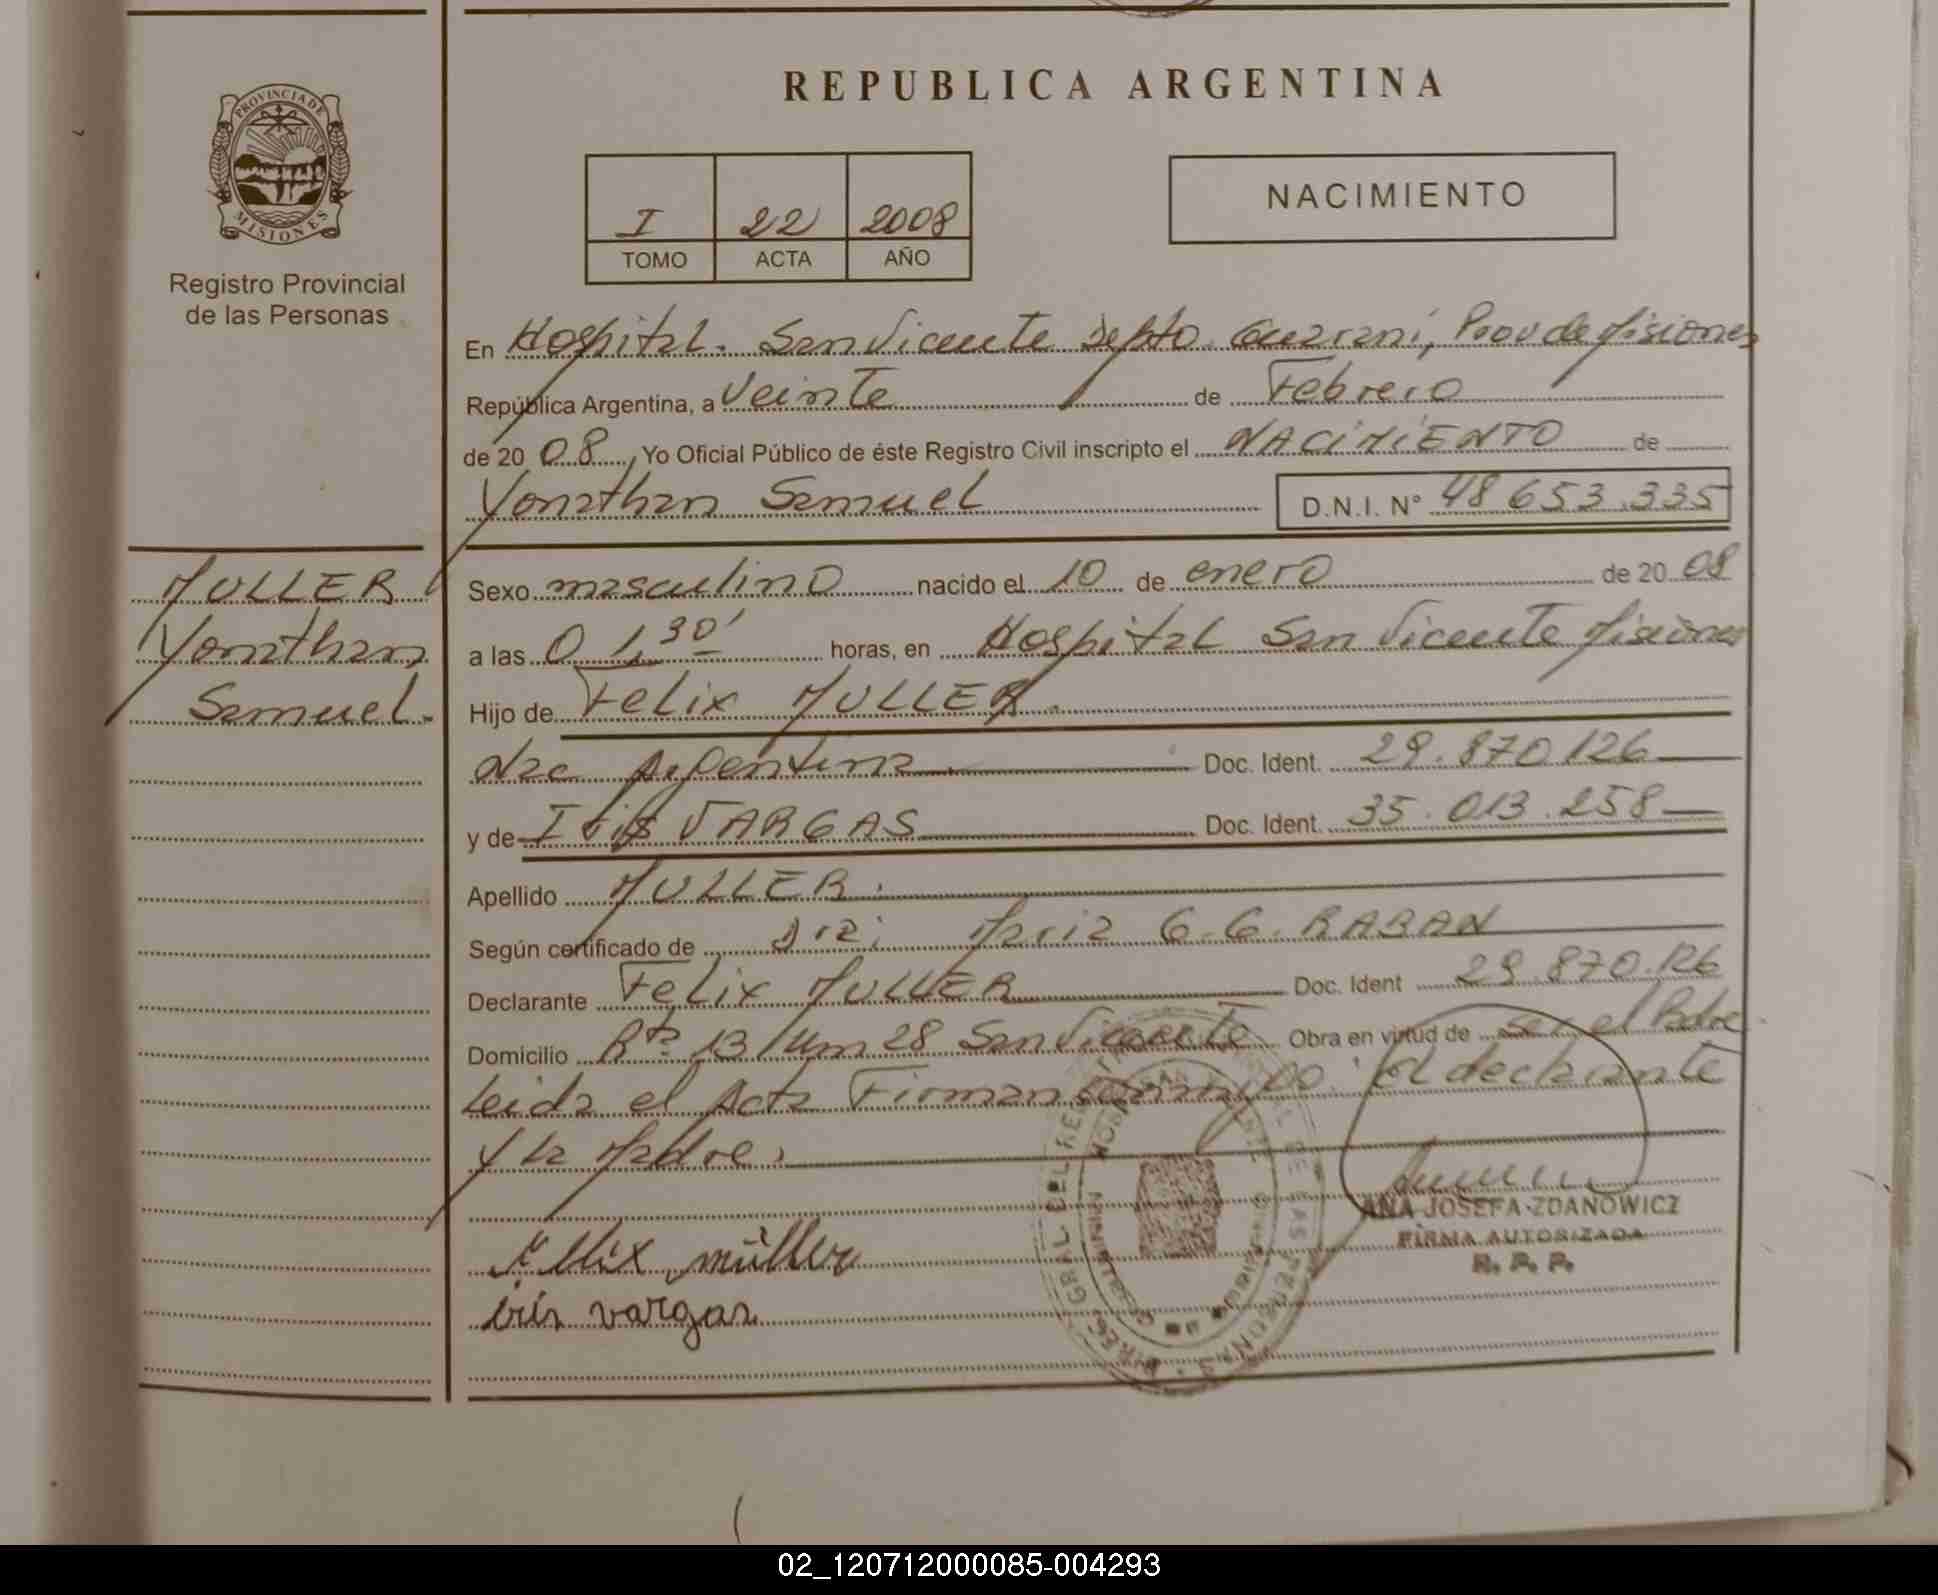 REPUBLICA ARGENTINA
PROVINCIA DE MISIONES
Registro Provincial
de las Personas
I 22 2008
TOMO ACTA AÑO
NACIMIENTO
En Hospital. San Vicente Depto. Guarani, Prov de Misiones
República Argentina, a Veinte de Febrero
de 20 08, Yo Oficial Público de éste Registro Civil inscripto el NACIMIENTO de
Yonathan Samuel D.N.I. N° 48 653.335
MULLER
Yonathan
Samuel.
Sexo masculino nacido el 10 de enero de 20 08
a las 0 1,30' horas, en Hospital San Vicente Misiones
Hijo de Felix MULLER.
Nac Argentina Doc. Ident. 29.870 126
y de Iris VARGAS Doc. Ident. 35.013.258
Apellido MULLER.
Según certificado de Dra: Maria G.G. RABAN
Declarante Felix MULLER Doc. Ident 29.870.126
Domicilio Rta 13 Km 28 San Vicente Obra en virtud de ser el Padre
Leida el Acta Firman conmigo: El declarante
y la Madre.
Felix müller
iris vargas
ANA JOSEFA ZDANOWICZ
FIRMA AUTORIZADA
R. P. P.
02_120712000085-004293